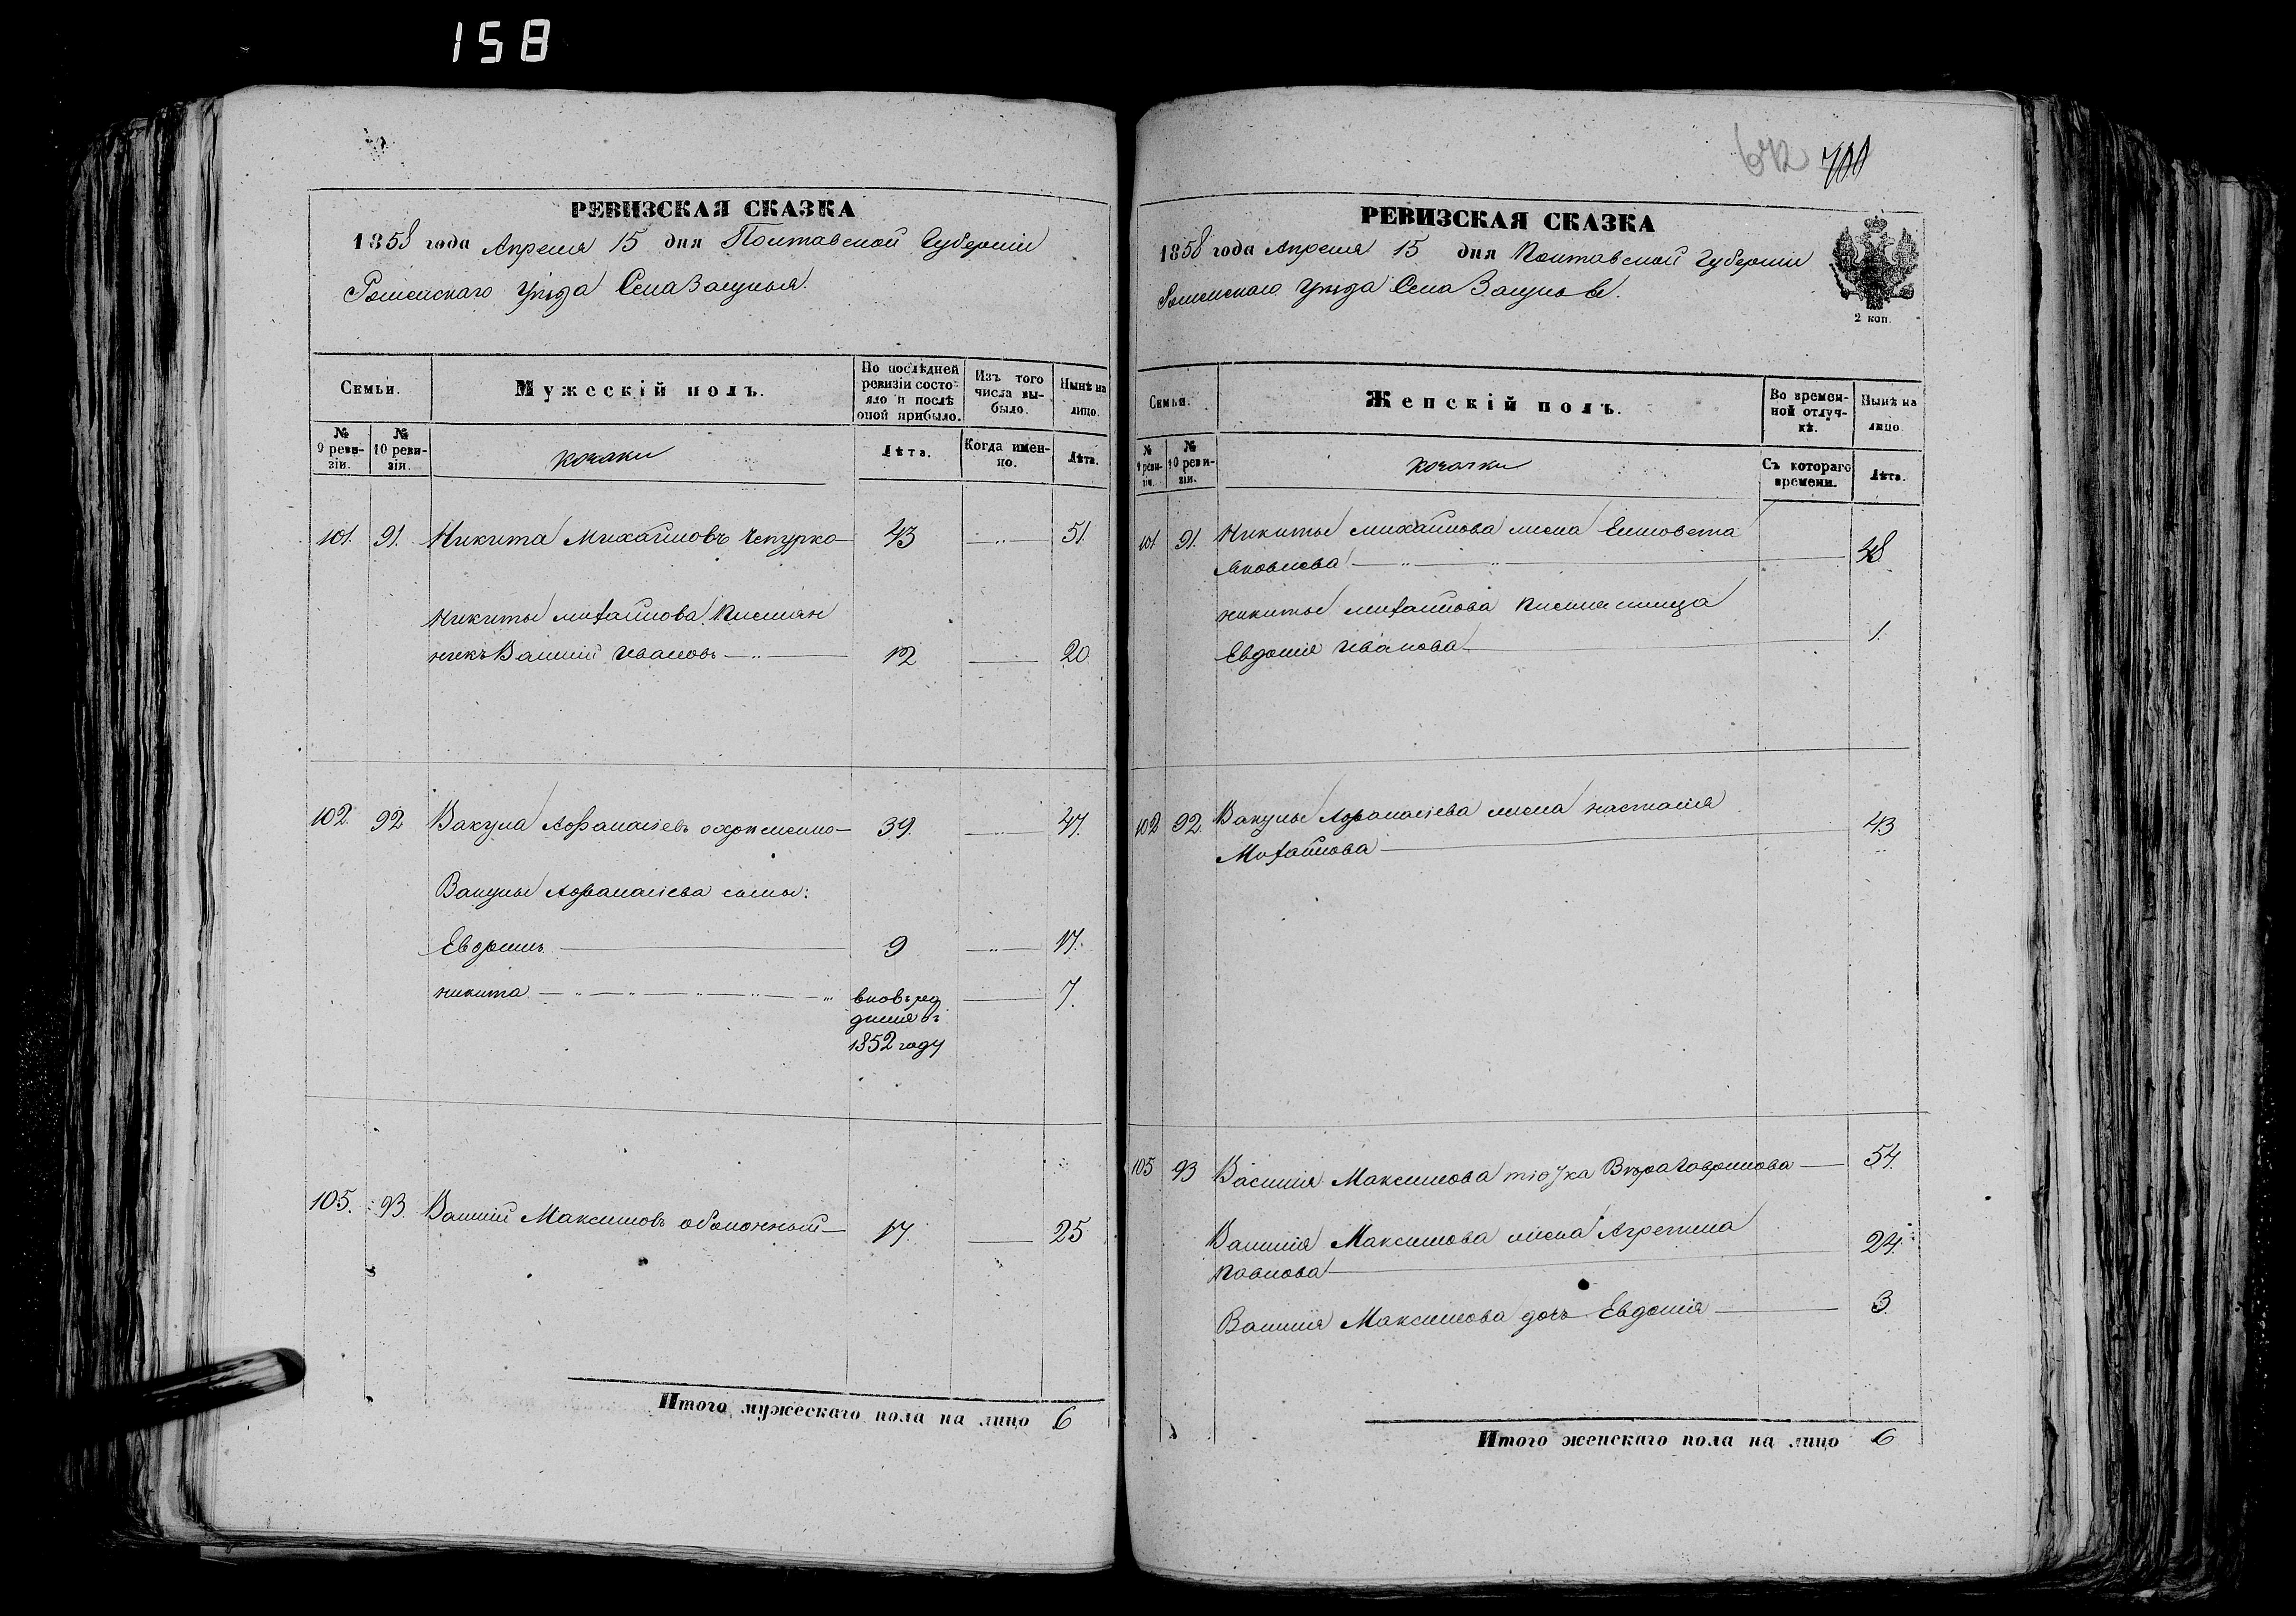 158
РЕВИЗСКАЯ СКАЗКА
1858 года Апреля 15 дня Полтавской Губерніи
Роменскаго Уѣзда Села
Семьи.
Мужескій полъ.
По послѣдней ревизіи состояло и послѣ оной прибыло.
Изъ того числа выбыло.
Нынѣ на лицо.
№ 9 ревизіи.
№ 10 ревизіи.
козаки
Лѣта.
Когда именно.
Лѣта.
101. 91. Никита Михайловъ Чепурко 43 51.
Никиты Михайлова племян
никъ Василій Ивановъ 12 20
102. 92 Вакула Афанасіевъ 39. 47.
Вакулы Афанасіева сыны:
9 17.
Никита вновь ро 7.
дился въ
1852 году
105. 93. Василій Максимовъ оболонный 17. 25
Итого мужескаго пола на лицо 6
672 700
РЕВИЗСКАЯ СКАЗКА
1858 года Апреля 15 дня Полтавской Губерніи
Роменскаго Уѣзда Села
2 коп.
Семьи.
Женскій полъ.
Во временной отлучкѣ.
Нынѣ на лицо.
№ 9 ревизіи.
№ 10 ревизіи.
козачки
Съ котораго времени.
Лѣта.
101 91. Никиты Михайлова жена Елисовета
Яковлева 48
Никиты Михайлова племянница
Евдокія Иванова 1.
102 92. Вакулы Афанасіева жена Настасія 43
Михайлова
105 93 Василія Максимова тіотка Вѣра Гаврилова 54.
Василія Максимова жена Агрепина 24.
Павлова
Василія Максимова дочь Евдокія 3.
Итого женскаго пола на лицо 6